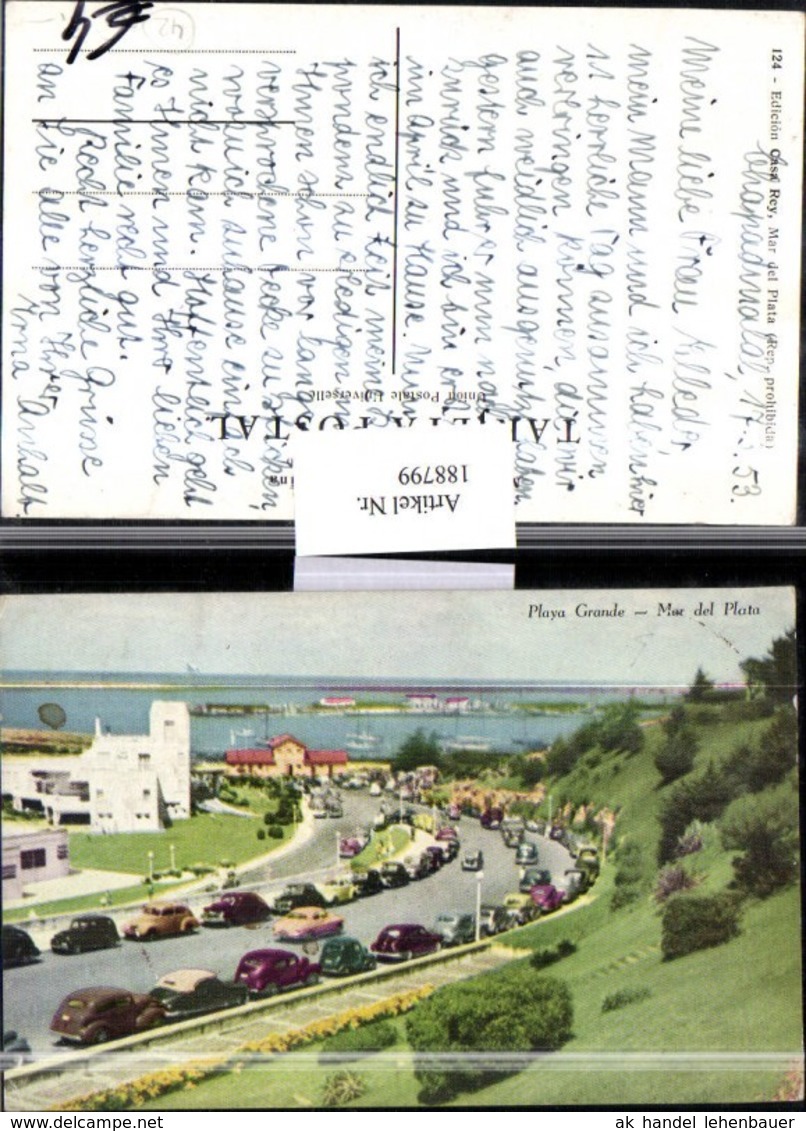 54
42
124 - Edición Casa Rey, Mar del Plata (Rep. prohibida)
Chapadmalal, 17.3.53.
Meine liebe Frau
mein Mann und ich haben hier
11 herrliche Tag zusammen
verbringen können, die wir
auch weidlich ausgenutzt haben,
gestern fuhr er nun nach
zurück und ich bin erst
im April zu Hause. Nun
ich endlich Zeit meine
zu erledigen
Ihnen schon vor langem
versprochene Decke zu schicken,
wozu ich zuhause einfach
nicht kam. Hoffentlich geht
es Ihnen und Ihrer lieben
Familie recht gut.
Recht herzliche Grüsse
an Sie alle von Ihrer
Irma Anhalt
TARJETA POSTAL
Unión Postale Universelle
Artikel Nr.
188799
Playa Grande — Mar del Plata
ak handel lehenbauer